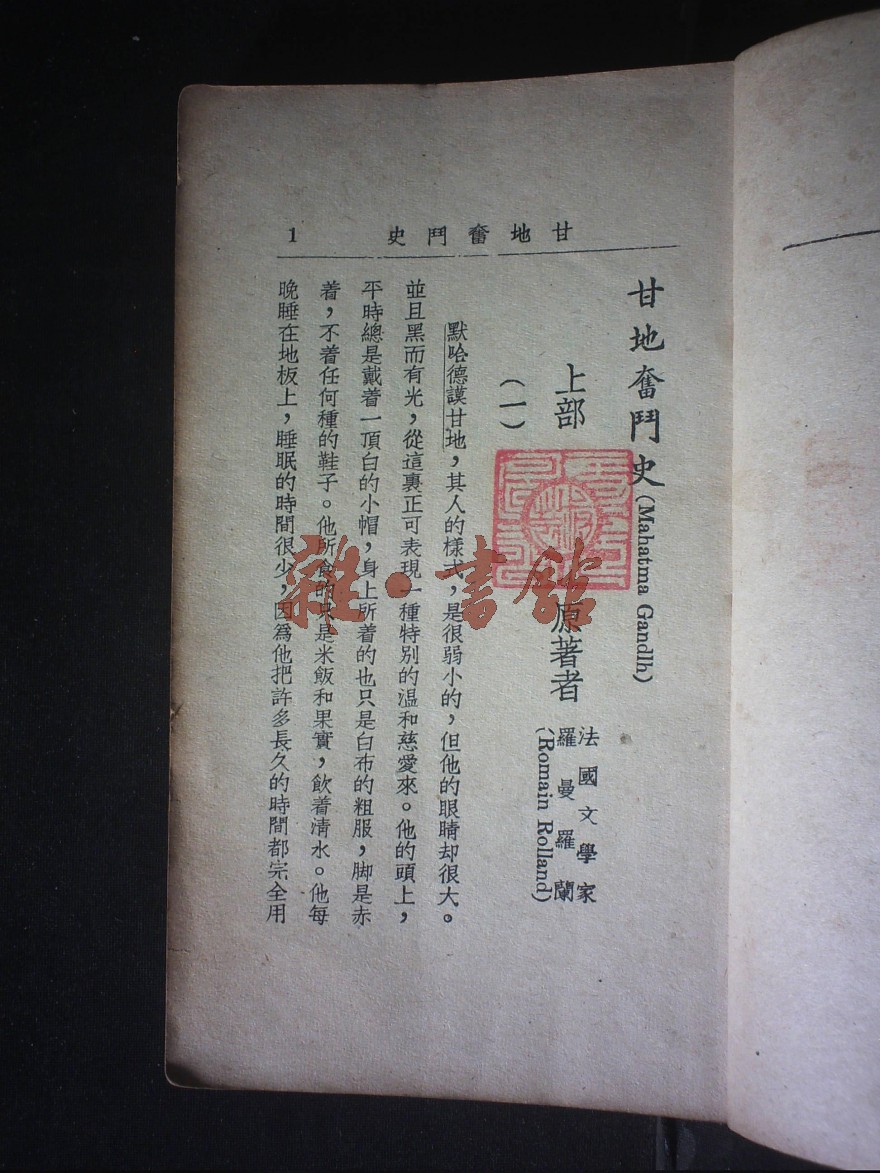 史鬥奮地甘 1
甘地奮鬥史(Mahatma Gandlh)
上部 原著者
法國文學家
羅曼羅蘭
(Romain Rolland)
(一)
默哈德謨甘地，其人的樣式，是很弱小的，但他的眼睛却很大。
並且黑而有光，從這裏正可表現一種特别的温和慈愛來。他的頭上，
平時總是戴着一頂白的小帽，身上所着的也只是白布的粗服，脚是赤
着，不着任何種的鞋子。他所食的只是米飯和果實，飲着清水。他每
晚睡在地板上，睡眠的時間很少，因爲他把許多長久的時間都宗全用
雜·書館